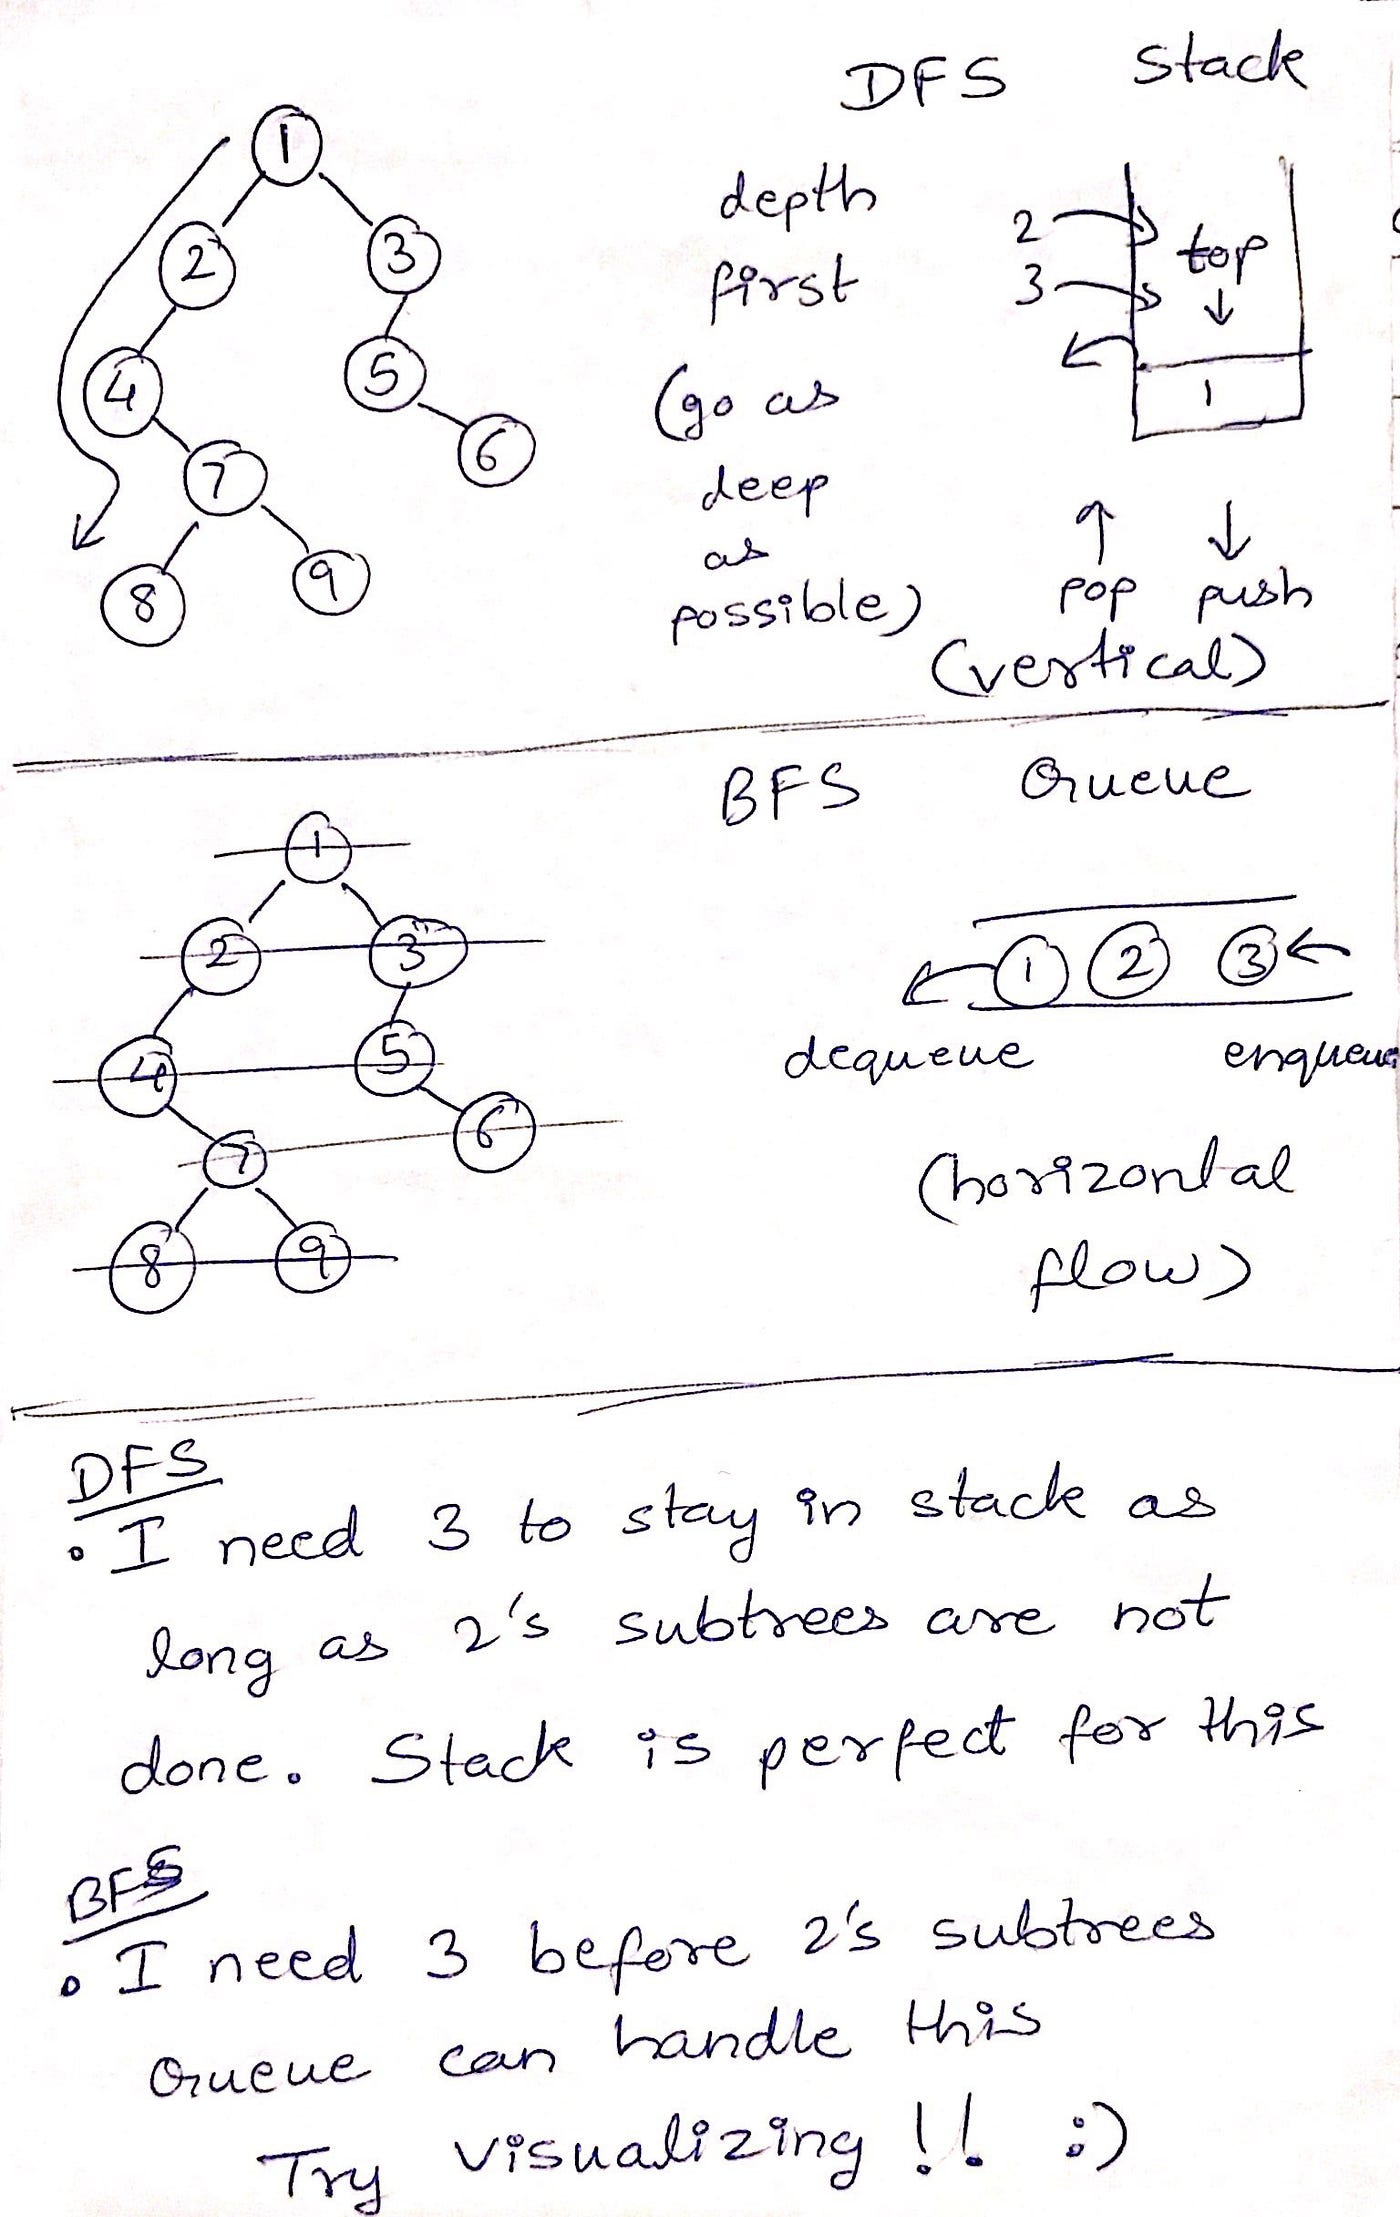 DFS Stack
1
2 3
4 5
6
7
8 9
depth
first
(go as
deep
as
possible)
2
3
top
1
pop push
(vertical)
BFS Queue
1
2 3
4 5
6
7
8 9
1 2 3
dequeue enqueue
(horizontal
flow)
DFS
• I need 3 to stay in stack as
long as 2's subtrees are not
done. Stack is perfect for this
BFS
• I need 3 before 2's subtrees
Queue can handle this
Try visualizing !! :)